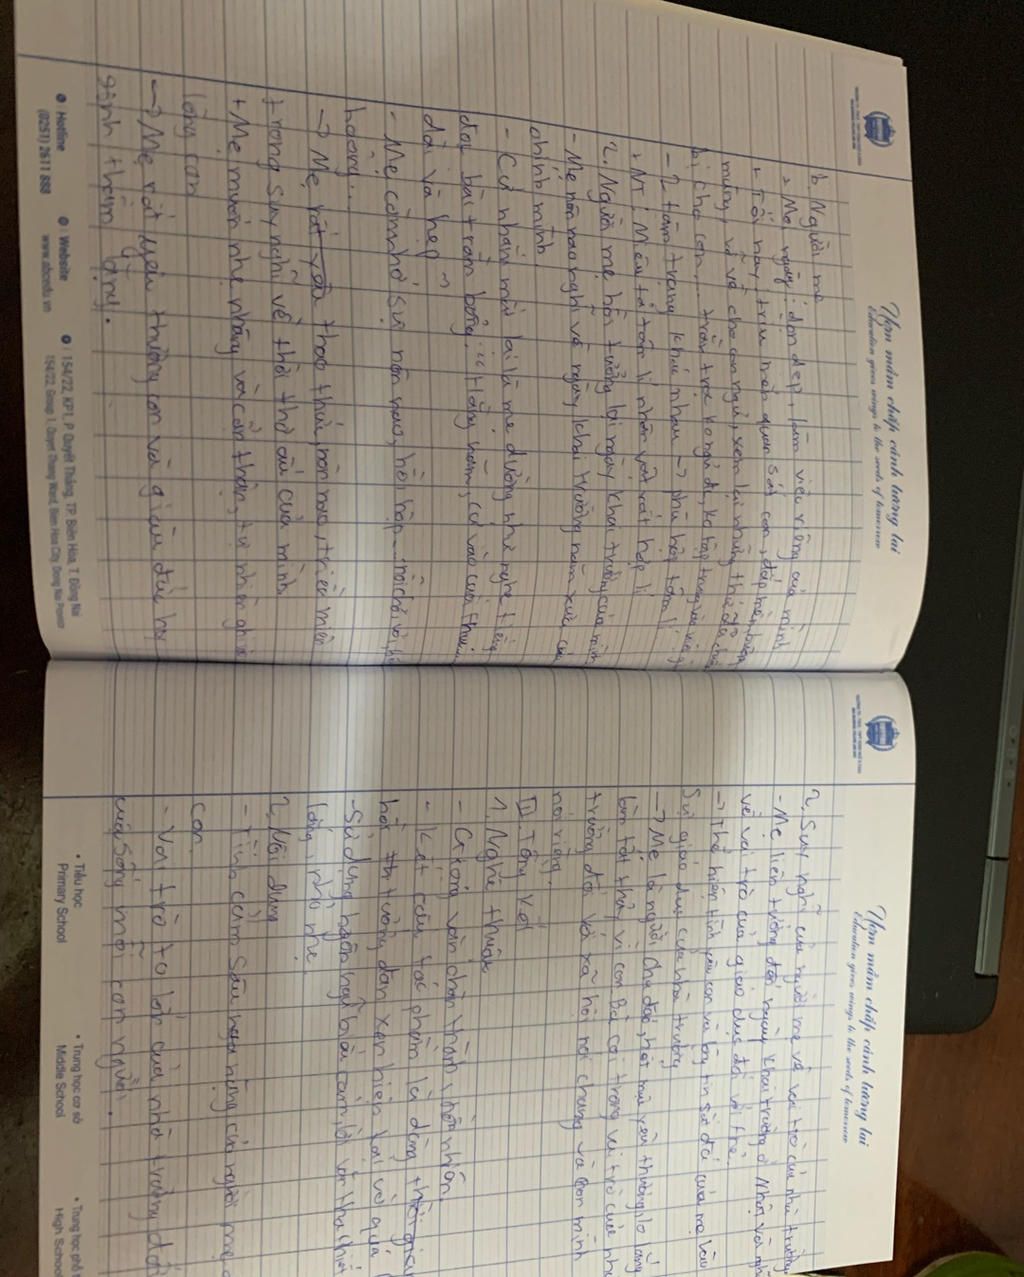 Ươm mầm chắp cánh tương lai
Education gives wings to the seeds of tomorrow
b. Người mẹ
+ Mọi ngày: dọn dẹp, làm việc riêng của mình
+ Tối nay: trìu mến quan sát con, đắp mền, buông
mùng, vỗ về cho con ngủ, xem lại những thứ đã chuẩn
bị cho con... trằn trọc ko ngủ đc, ko tập trung vào việc gì
- 2 tâm trạng khác nhau → phù hợp tâm lí
+ NT: Miêu tả tâm lí nhân vật rất hợp lí
2. Người mẹ hồi tưởng lại ngày khai trường của mình
- Mẹ nôn nao nghĩ về ngày khai trường năm xưa của
chính mình
- Cứ nhắm mắt lại là mẹ dường như nghe tiếng
đọc bài trầm bổng: "Hằng năm, cứ vào cuối thu...
dài và hẹp"
- Mẹ còn nhớ sự nôn nao, hồi hộp
hoảng...
→ Mẹ thao thức, nôn nao, triền miên
trong suy nghĩ về thời thơ ấu của mình
+ Mẹ muốn nhẹ nhàng và cẩn thận, tự nhiên ghi
lòng con
→ Mẹ rất yêu thương con và giàu đức hy
sinh thầm lặng.
Hotline
(0251) 2611 888
Website
www.abcedu.vn
154/22, KP1, P. Quyết Thắng, TP. Biên Hòa, T. Đồng Nai
154/22, Group 1, Quyet Thang Ward, Bien Hoa City, Dong Nai
Ươm mầm chắp cánh tương lai
Education gives wings to the seeds of tomorrow
2. Suy nghĩ của người mẹ về vai trò của nhà trường
- Mẹ liên tưởng đến ngày khai trường ở Nhật và nghĩ
về vai trò của giáo dục đối với thế
→ Thể hiện tình yêu con và lòng tin sâu của mẹ vào
sự giáo dục của nhà trường
→ Mẹ là người chu đáo, hết mực yêu thương, lo lắng
làm tất thảy vì con. Bà coi trọng vai trò của nhà
trường đối với xã hội nói chung và con mình
nói riêng.
III. Tổng kết
1. Nghệ thuật
- Giọng văn chân thành, hồn nhiên
- Kết cấu tác phẩm là dòng thời gian
hồi tưởng đan xen hiện tại và quá
- Sử dụng ngôn ngữ lời văn tha thiết
lắng, nhỏ nhẹ.
2. Nội dung
- Tình cảm sâu nặng của người mẹ
con.
- Vai trò to lớn của nhà trường đối
cuộc sống mỗi con người.
• Tiểu học
Primary School
• Trung học cơ sở
Middle School
• Trung học phổ
High School